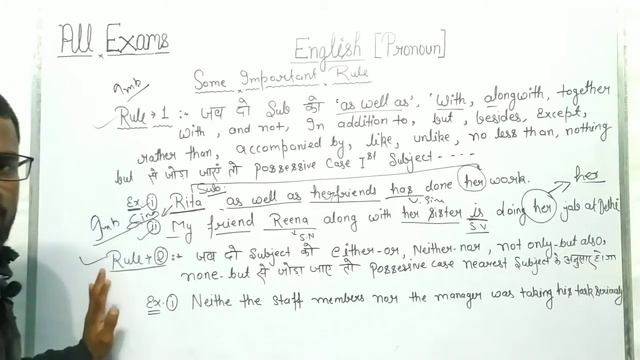 All Exams
English [Pronoun]
Imb
Some Important Rule
Rule → 1 :- जब दो Sub को 'as well as', 'With, alongwith, together
with, and not, In addition to, but, besides, Except,
rather than, accompanied by, like, unlike, no less than, nothing
but से जोड़ा जाएं तो possessive case Ist Subject ----
Sub.
her
Ex. (i) Rita as well as herfriends has done her work.
Sin
Imb Sin
(ii) My friend Reena along with her sister is doing her job at Delhi
S.N S.V
Rule → (2) :- जब दो Subject को either-or, Neither-nor, not only-but also,
none-but से जोड़ा जाए तो possessive case nearest Subject के अनुसार होगा
Ex. (i) Neithe the staff members nor the manager was taking his task seriously